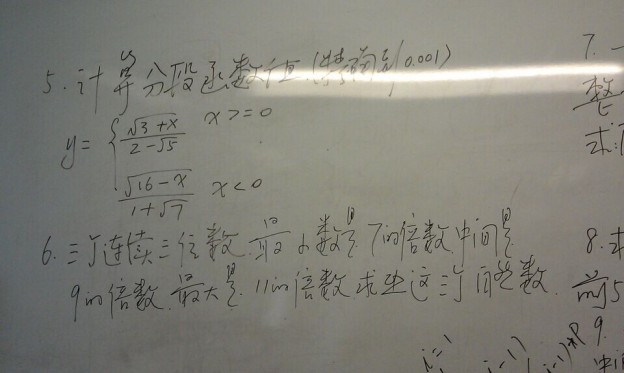 5. 计算分段函数值 (精确到0.001)
y = { √3+x / 2-√5   x>=0
√16-x / 1+√7   x<0
6. 三个连续三位数 最小数是7的倍数 中间是
9的倍数 最大是11的倍数 求出这三个 数
7. 一
整
求:
8. 求
前5
9.
中间
i=1